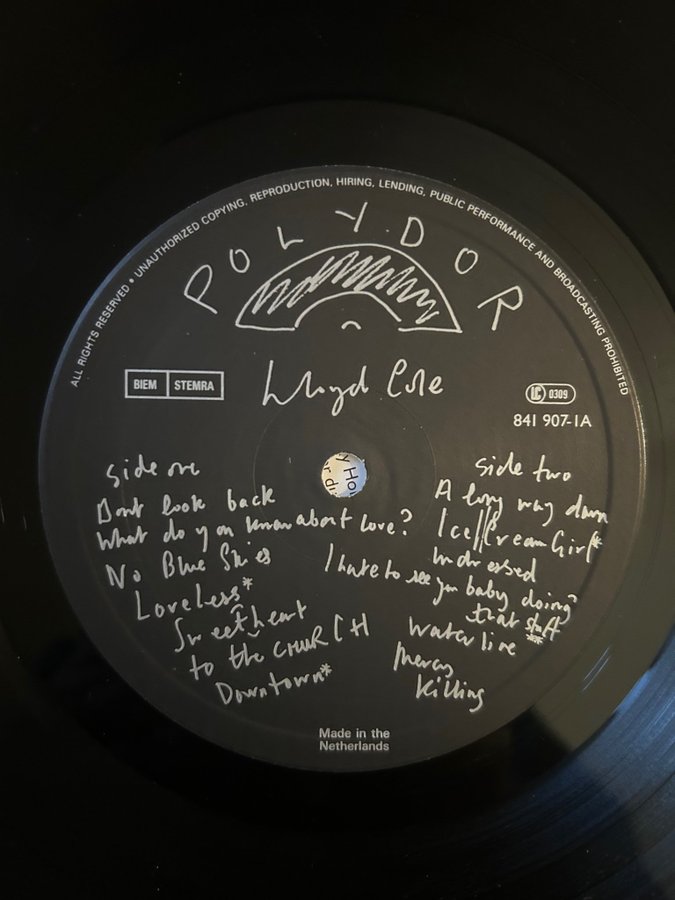 ALL RIGHTS RESERVED • UNAUTHORIZED COPYING, REPRODUCTION, HIRING, LENDING, PUBLIC PERFORMANCE AND BROADCASTING PROHIBITED
POLYDOR
BIEM STEMRA
Lloyd Cole
LC 0309
841 907-1A
side one
Dont look back
What do you know about love?
No Blue Skies
Loveless*
Sweetheart
to the CHURCH
Downtown*
side two
A long way down
Ice Cream Girl*
undressed
I hate to see you baby doing
that stuff
waterline **
Mercy
Killing
Made in the
Netherlands